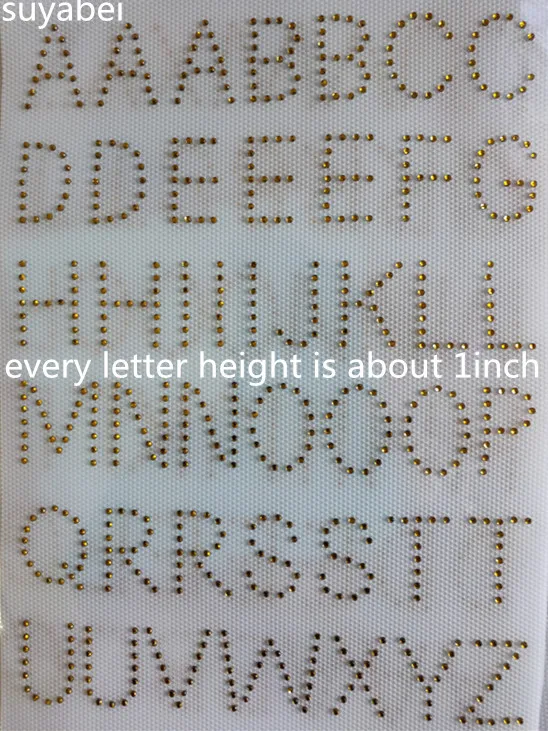 suyabei
AAABBCC
DDEEEFG
HHIIIJKLL
every letter height is about 1inch
MNNOOOP
QRRSSTT
UUVWXYZ